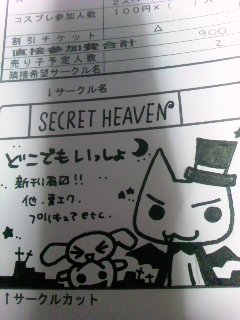 コスプレ参加人数
100円×(
割引チケット
△
900
直接参加費合計
2
売り子予定人数
隣接希望サークル名
↓サークル名
SECRET HEAVEN
どこでもいっしょ
新刊有!!
他、裏エク。
プリキュアetc.
↑サークルカット